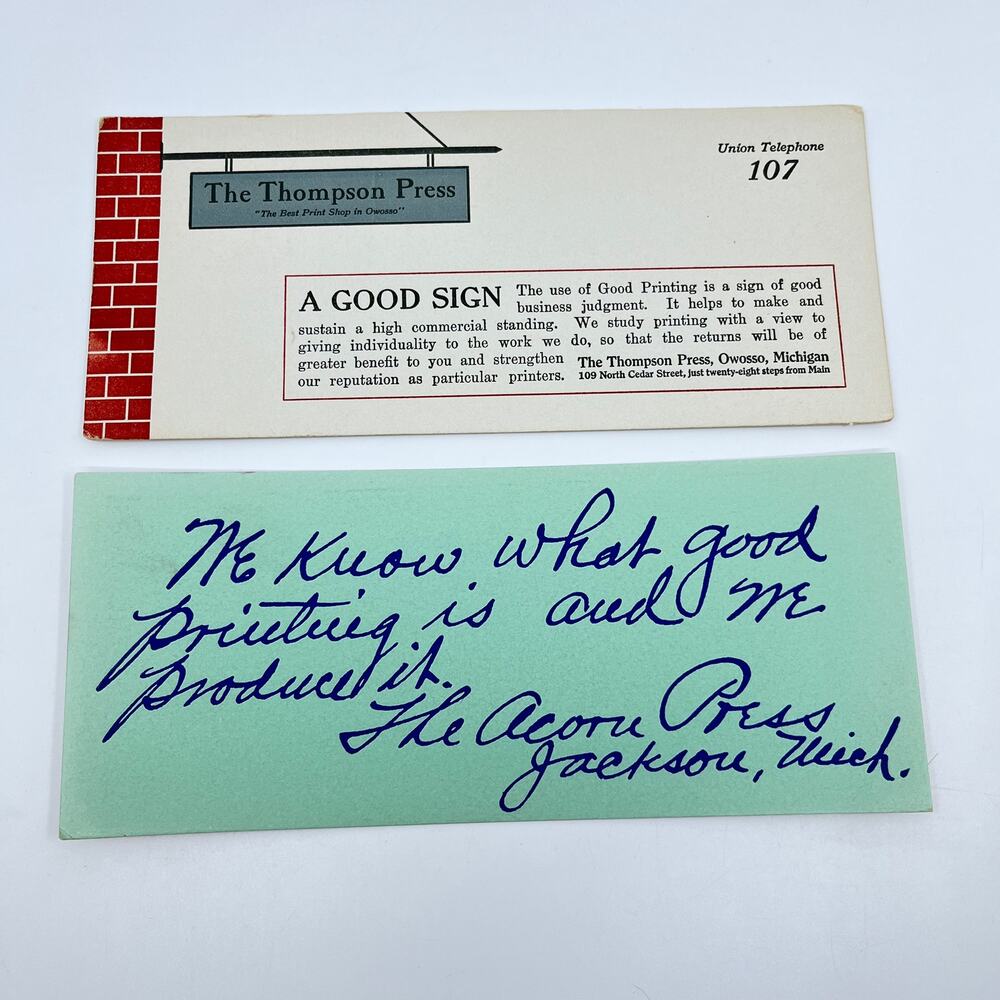 The Thompson Press
"The Best Print Shop in Owosso"
Union Telephone
107
A GOOD SIGN The use of Good Printing is a sign of good
business judgment. It helps to make and
sustain a high commercial standing. We study printing with a view to
giving individuality to the work we do, so that the returns will be of
greater benefit to you and strengthen The Thompson Press, Owosso, Michigan
our reputation as particular printers. 109 North Cedar Street, just twenty-eight steps from Main
We know what good
printing is and we
produce it.
The Acorn Press
Jackson, Mich.